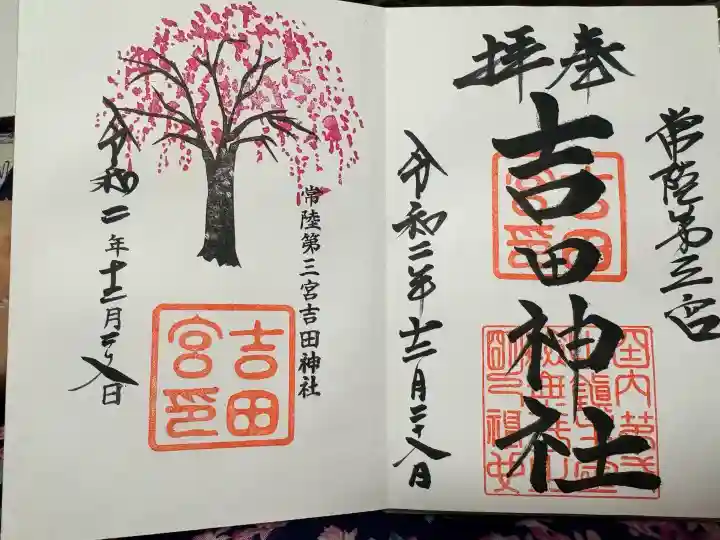 常陸第三宮
奉拝
吉田神社
吉田
宮印
令和二年十二月二十八日
常陸第三宮吉田神社
吉田
宮印
令和二年十二月二十八日